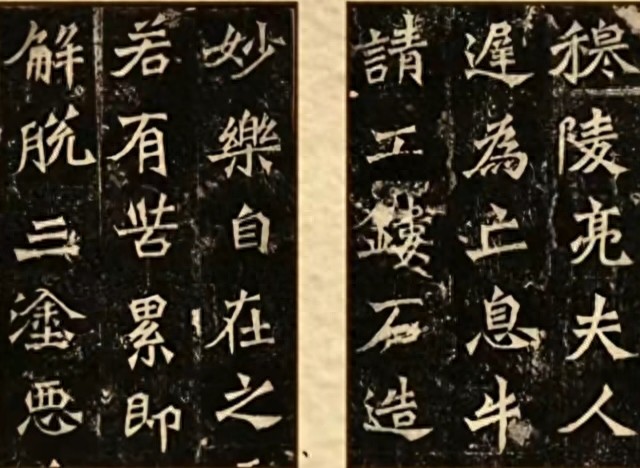 穆陵亮夫人
遲為亡息牛
請工鏤石造
妙樂自在之
若有苦累即
解脫三塗惡